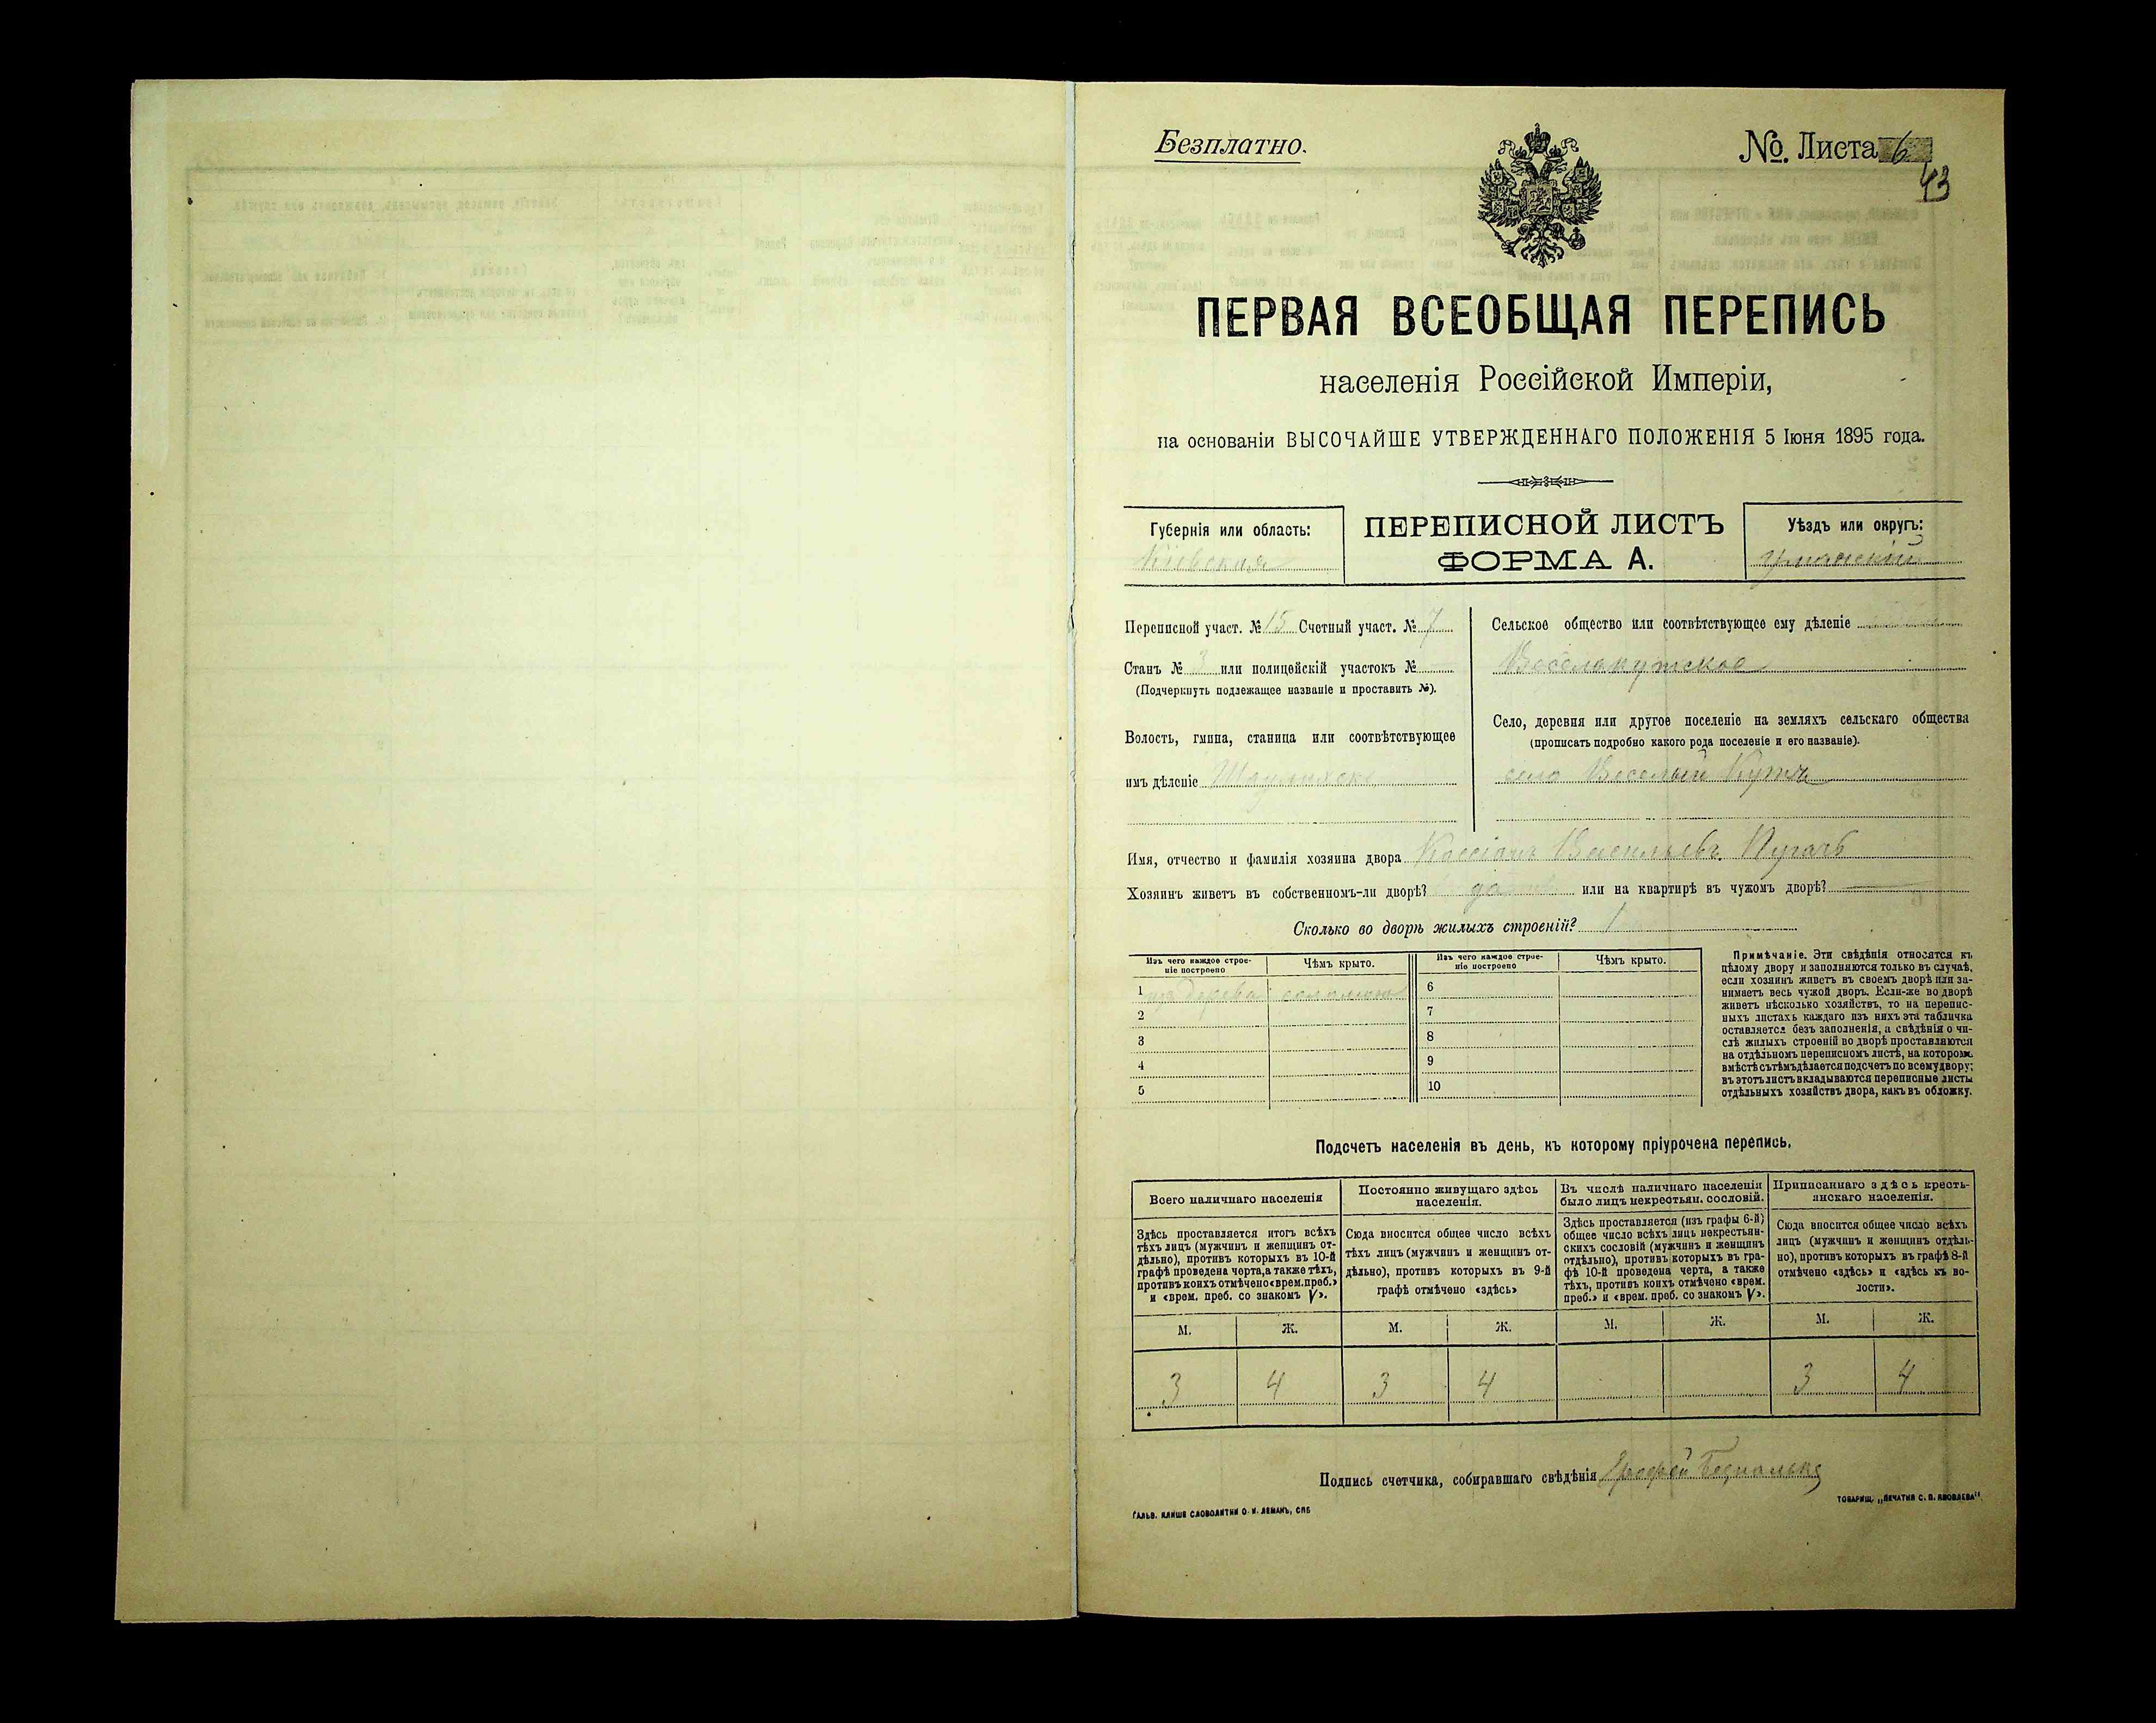 Безплатно.
№. Листа 6
43
ПЕРВАЯ ВСЕОБЩАЯ ПЕРЕПИСЬ
населенія Россійской Имперіи,
на основаніи ВЫСОЧАЙШЕ УТВЕРЖДЕННАГО ПОЛОЖЕНІЯ 5 Іюня 1895 года.
Губернія или область:
Кіевская
ПЕРЕПИСНОЙ ЛИСТЪ
ФОРМА А.
Уѣздъ или округъ:
Уманскій
Переписной участ. № 15 Счетный участ. № 7
Станъ № 3 или полицейскій участокъ №
(Подчеркнуть подлежащее названіе и проставить №).
Волость, гмина, станица или соотвѣтствующее
имъ дѣленіе
Сельское общество или соотвѣтствующее ему дѣленіе
Веселокутское
Село, деревня или другое поселеніе на земляхъ сельскаго общества
(прописать подробно какого рода поселеніе и его названіе).
село Веселый Кутъ
Имя, отчество и фамилія хозяина двора Кассіанъ Васильевъ Пугачъ
Хозяинъ живетъ въ собственномъ-ли дворѣ? да или на квартирѣ въ чужомъ дворѣ?
Сколько во дворѣ жилыхъ строеній? 1
Изъ чего каждое строе-
ніе построено
Чѣмъ крыто.
Изъ чего каждое строе-
ніе построено
Чѣмъ крыто.
1 изъ дерева соломою
2
3
4
5
6
7
8
9
10
Примѣчаніе. Эти свѣдѣнія относятся къ
цѣлому двору и заполняются только въ случаѣ,
если хозяинъ живетъ въ своемъ дворѣ или за-
нимаетъ весь чужой дворъ. Если-же во дворѣ
живетъ нѣсколько хозяйствъ, то на перепис-
ныхъ листахъ каждаго изъ нихъ эта табличка
оставляется безъ заполненія, а свѣдѣнія о чи-
слѣ жилыхъ строеній во дворѣ проставляются
на отдѣльномъ переписномъ листѣ, на которомъ
вмѣстѣ съ тѣмъ дѣлается подсчетъ по всему двору;
въ этотъ листъ вкладываются переписные листы
отдѣльныхъ хозяйствъ двора, какъ въ обложку.
Подсчетъ населенія въ день, къ которому пріурочена перепись.
Всего наличнаго населенія
Здѣсь проставляется итогъ всѣхъ
тѣхъ лицъ (мужчинъ и женщинъ от-
дѣльно), противъ которыхъ въ 10-й
графѣ проведена черта, а также тѣхъ,
противъ коихъ отмѣчено «врем. преб.»
и «врем. преб. со знакомъ V».
Постоянно живущаго здѣсь
населенія.
Сюда вносится общее число всѣхъ
тѣхъ лицъ (мужчинъ и женщинъ от-
дѣльно), противъ которыхъ въ 9-й
графѣ отмѣчено «здѣсь»
Въ числѣ наличнаго населенія
было лицъ некрестьян. сословій.
Здѣсь проставляется (изъ графы 6-й)
общее число всѣхъ лицъ некрестьян-
скихъ сословій (мужчинъ и женщинъ
отдѣльно), противъ которыхъ въ гра-
фѣ 10-й проведена черта, а также
тѣхъ, противъ коихъ отмѣчено «врем.
преб.» и «врем. преб. со знакомъ V».
Приписаннаго здѣсь кресть-
янскаго населенія.
Сюда вносится общее число всѣхъ
лицъ (мужчинъ и женщинъ отдѣль-
но), противъ которыхъ въ графѣ 8-й
отмѣчено «здѣсь» и «здѣсь къ во-
лости».
М. Ж. М. Ж. М. Ж. М. Ж.
3 4 3 4 3 4
Подпись счетчика, собиравшаго свѣдѣнія
ГАЛЬВ. КЛИШЕ СЛОВОЛИТНИ О. И. ЛЕМАНЪ, СПБ
ТОВАРИЩ. „ПЕЧАТНЯ С. П. ЯКОВЛЕВА"